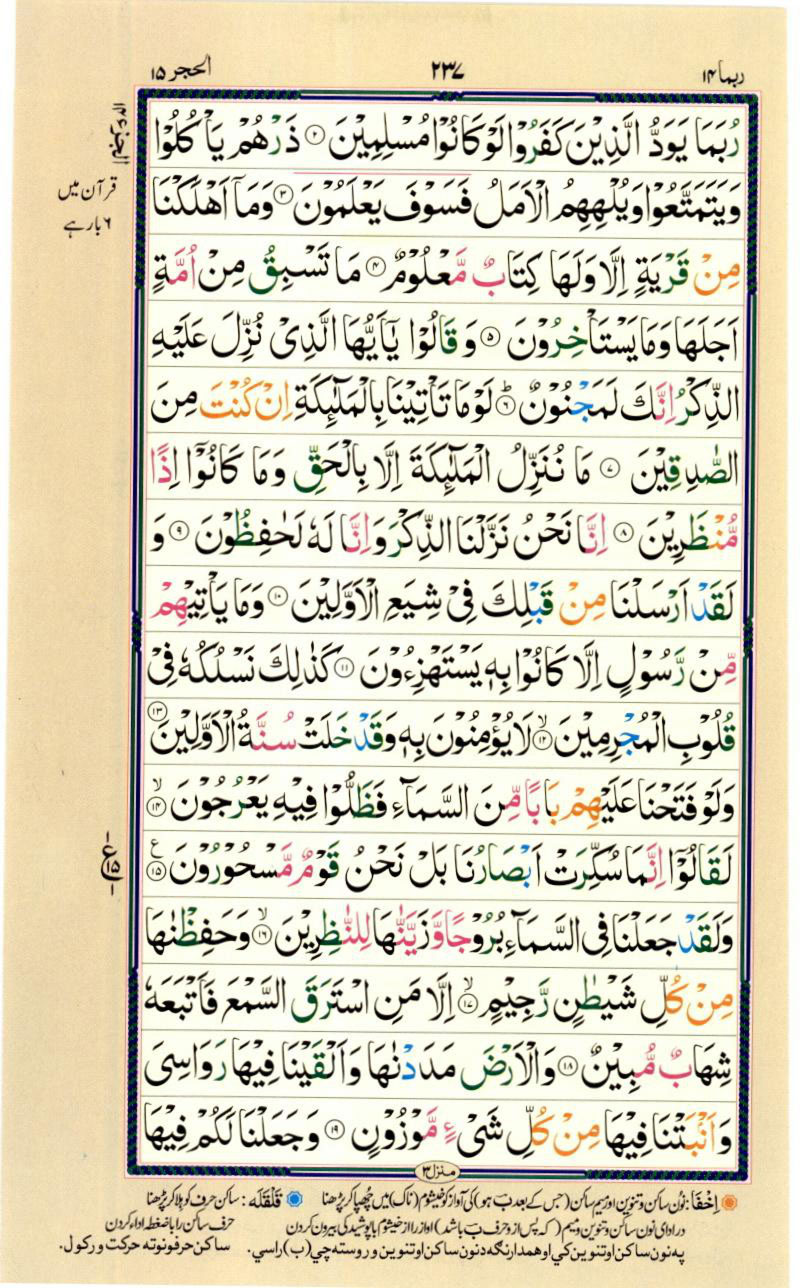 ربما ۱۴
۲۳۷
الحجر ۱۵
رُبَمَا يَوَدُّ الَّذِيْنَ كَفَرُوْا لَوْ كَانُوْا مُسْلِمِيْنَ ۲ ذَرْهُمْ يَاْكُلُوْا
وَيَتَمَتَّعُوْا وَيُلْهِهِمُ الْاَمَلُ فَسَوْفَ يَعْلَمُوْنَ ۳ وَمَآ اَهْلَكْنَا
مِنْ قَرْيَةٍ اِلَّا وَلَهَا كِتَابٌ مَّعْلُوْمٌ ۴ مَا تَسْبِقُ مِنْ اُمَّةٍ
اَجَلَهَا وَمَا يَسْتَاْخِرُوْنَ ۵ وَقَالُوْا يٰۤاَيُّهَا الَّذِىْ نُزِّلَ عَلَيْهِ
الذِّكْرُ اِنَّكَ لَمَجْنُوْنٌ ۶ؕ لَوْ مَا تَاْتِيْنَا بِالْمَلٰٓئِكَةِ اِنْ كُنْتَ مِنَ
الصّٰدِقِيْنَ ۷ مَا نُنَزِّلُ الْمَلٰٓئِكَةَ اِلَّا بِالْحَقِّ وَمَا كَانُوْۤا اِذًا
مُّنْظَرِيْنَ ۸ اِنَّا نَحْنُ نَزَّلْنَا الذِّكْرَ وَاِنَّا لَهٗ لَحٰفِظُوْنَ ۹ وَ
لَقَدْ اَرْسَلْنَا مِنْ قَبْلِكَ فِىْ شِيَعِ الْاَوَّلِيْنَ ۱۰ وَمَا يَاْتِيْهِمْ
مِّنْ رَّسُوْلٍ اِلَّا كَانُوْا بِهٖ يَسْتَهْزِءُوْنَ ۱۱ كَذٰلِكَ نَسْلُكُهٗ فِىْ
قُلُوْبِ الْمُجْرِمِيْنَ ۱۲ۙ لَا يُؤْمِنُوْنَ بِهٖ وَقَدْ خَلَتْ سُنَّةُ الْاَوَّلِيْنَ ۱۳
وَلَوْ فَتَحْنَا عَلَيْهِمْ بَابًا مِّنَ السَّمَآءِ فَظَلُّوْا فِيْهِ يَعْرُجُوْنَ ۱۴ۙ
لَقَالُوْۤا اِنَّمَا سُكِّرَتْ اَبْصَارُنَا بَلْ نَحْنُ قَوْمٌ مَّسْحُوْرُوْنَ ۱۵ع
وَلَقَدْ جَعَلْنَا فِى السَّمَآءِ بُرُوْجًا وَّزَيَّنّٰهَا لِلنّٰظِرِيْنَ ۱۶ۙ وَحَفِظْنٰهَا
مِنْ كُلِّ شَيْطٰنٍ رَّجِيْمٍ ۱۷ۙ اِلَّا مَنِ اسْتَرَقَ السَّمْعَ فَاَتْبَعَهٗ
شِهَابٌ مُّبِيْنٌ ۱۸ وَالْاَرْضَ مَدَدْنٰهَا وَاَلْقَيْنَا فِيْهَا رَوَاسِىَ
وَاَنْۢبَتْنَا فِيْهَا مِنْ كُلِّ شَىْءٍ مَّوْزُوْنٍ ۱۹ وَجَعَلْنَا لَكُمْ فِيْهَا
قرآن میں
۶ بار ہے
ع
۱۵
منزل ۳
اِخْفَا: نُون ساکن و تنوین اور میم ساکن (جس کے بعد ب ہو) کی آواز کو خیشوم (ناک) میں چھپا کر پڑھنا قَلْقَلَه: ساکن حرف کو ہلا کر پڑھنا
در ادای نون ساکن و تنوین و میم (که پس از و حرف ب باشد) اواز را از خیشوم با پوشیدگی بیرون کردن حرف ساکن را با ضغطه ادا کردن
په نون ساکن او تنوین کي او همدارنگه د نون ساکن او تنوین و روسته چي (ب) راسي. ساکن حرفونو ته حرکت ورکول.